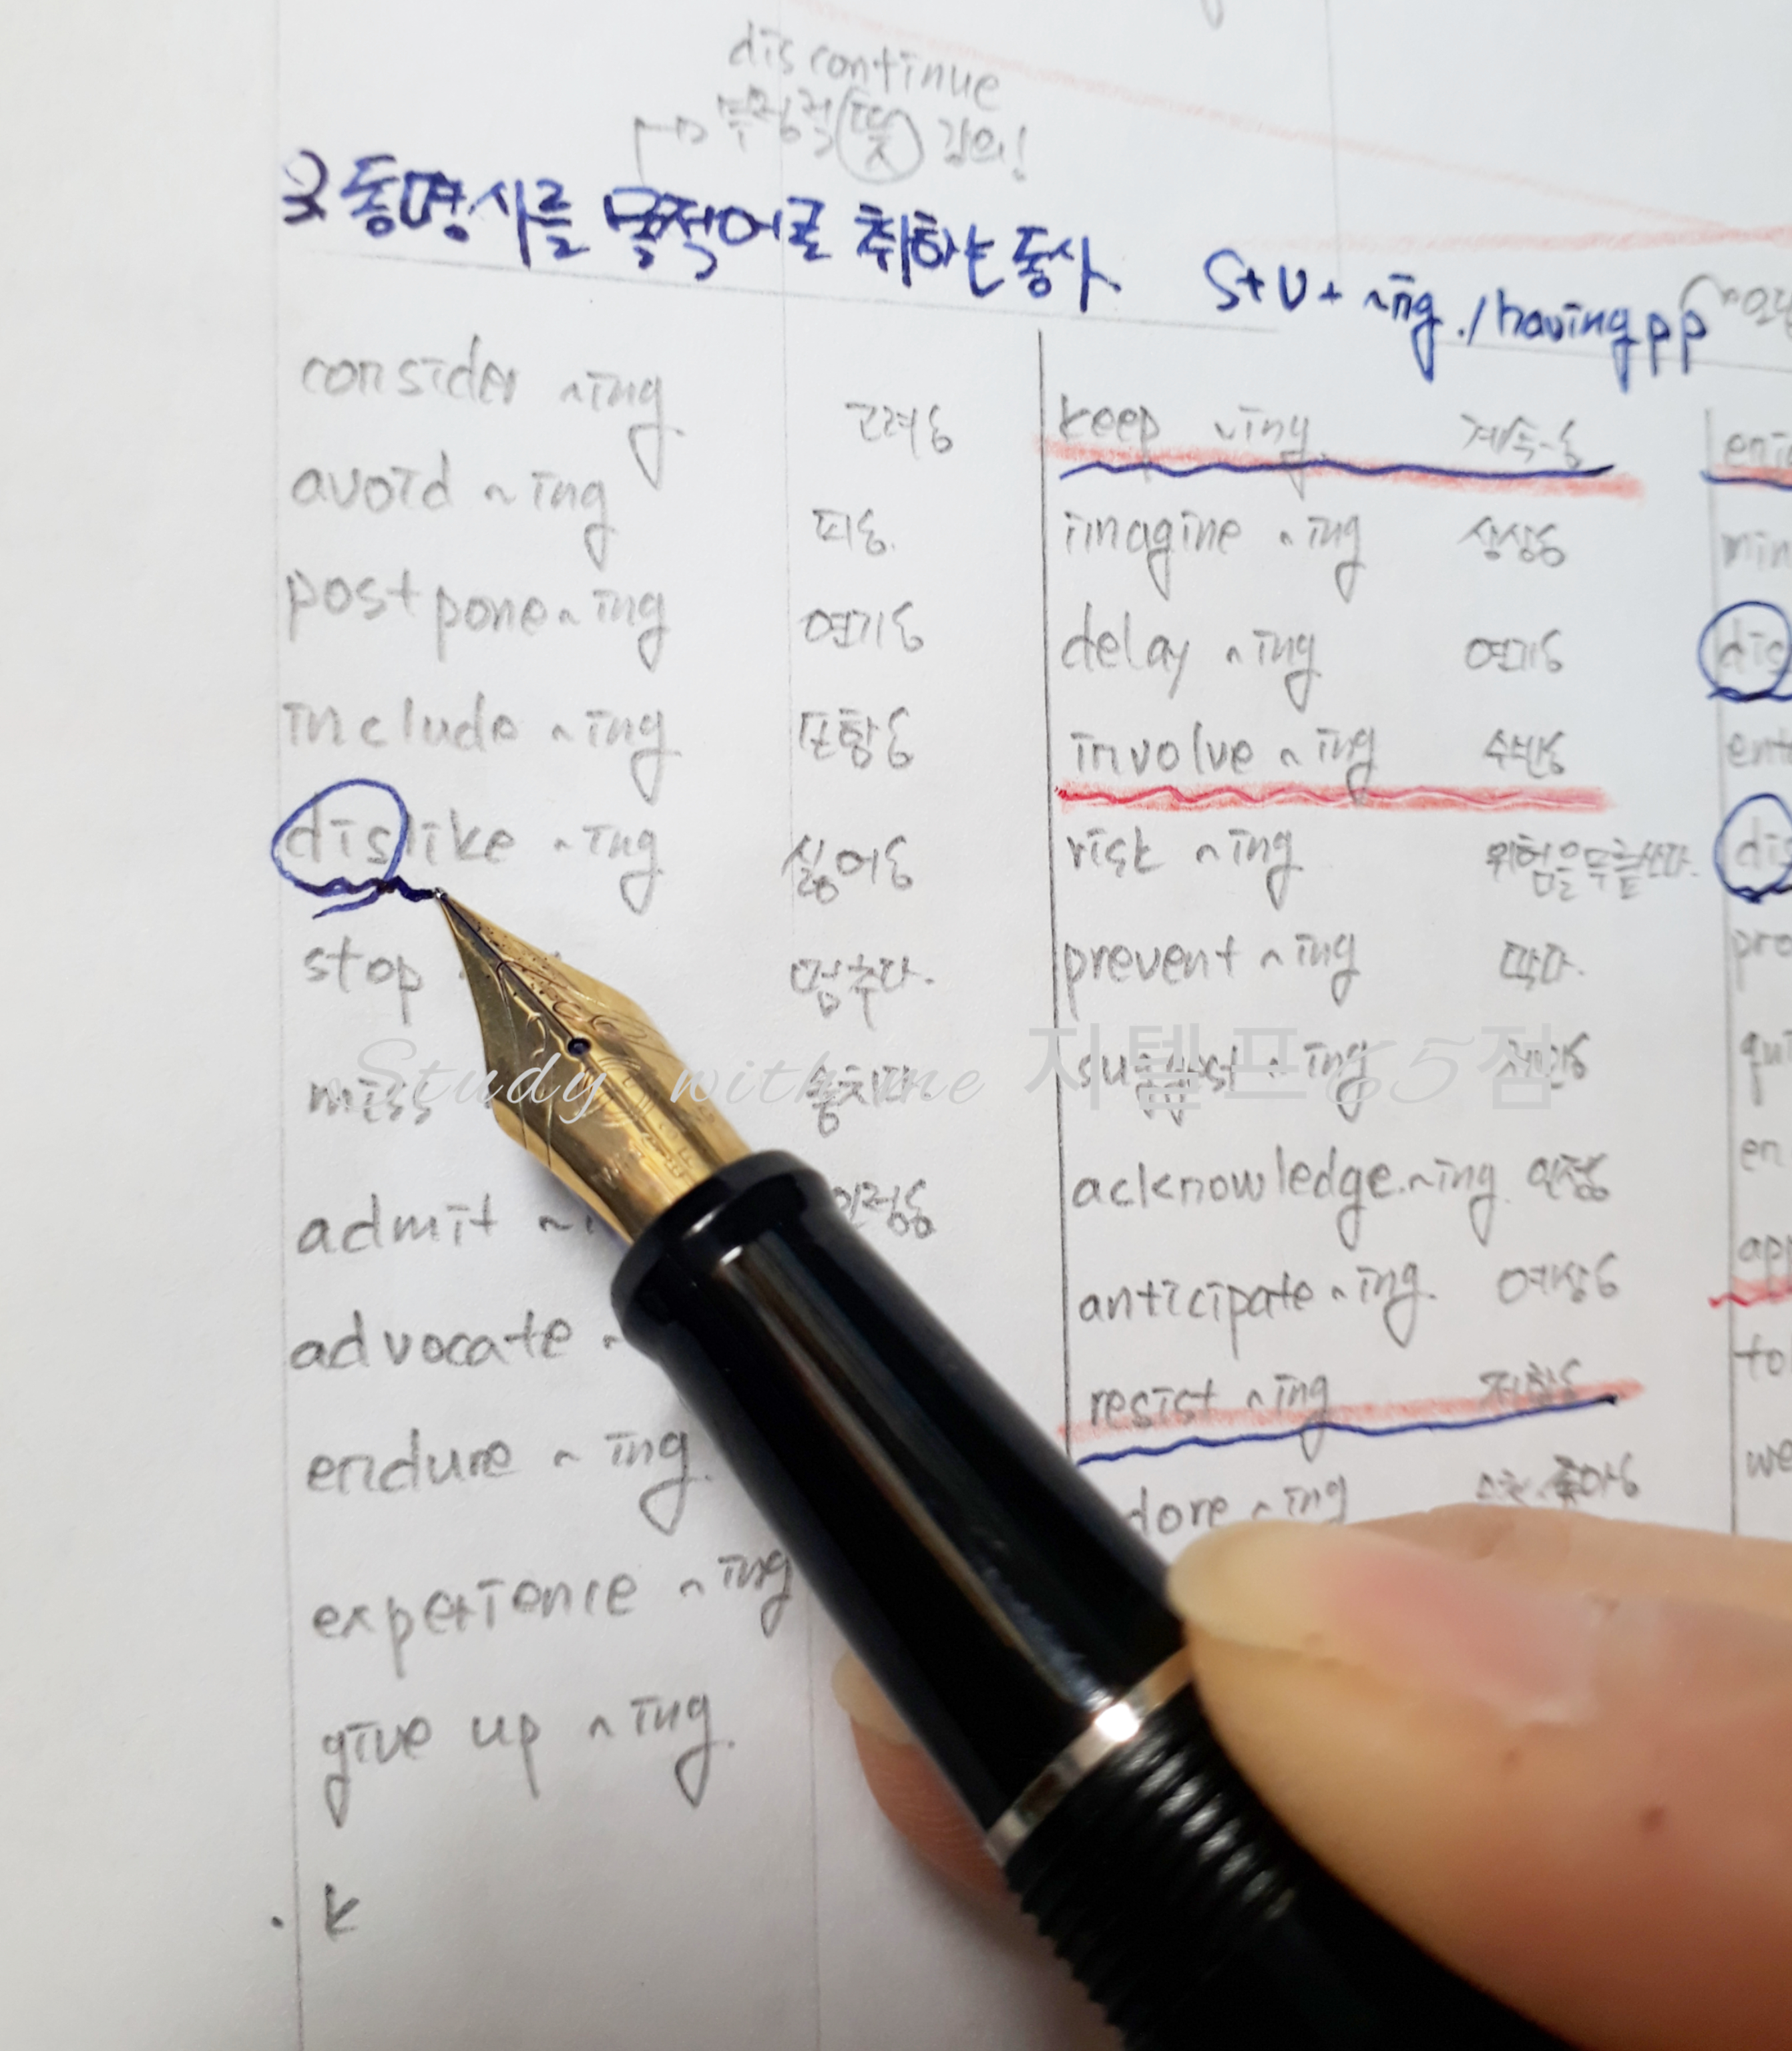 discontinue
부정적 뜻 강의!
동명사를 목적어로 취하는 동사 S+V+ ~ing./having pp
consider ~ing 고려ㅎ
avoid ~ing 피ㅎ
postpone ~ing 연기ㅎ
include ~ing 포함ㅎ
dislike ~ing 싫어ㅎ
stop 멈추다.
miss 놓치다
admit ~i 인정ㅎ
advocate ~
endure ~ing
experience ~ing
give up ~ing.
k
keep ~ing 계속~ㅎ
imagine ~ing 상상ㅎ
delay ~ing 연기ㅎ
involve ~ing 수반ㅎ
risk ~ing 위험을 무릅쓰다.
prevent ~ing 막다.
suggest ~ing 제안ㅎ
acknowledge ~ing 인정ㅎ
anticipate ~ing. 예상ㅎ
resist ~ing 저항ㅎ
dore ~ing 좋아ㅎ
enjo
min
dis
ente
dis
pre
qui
en
app
to
we
Study with me 지텔프65점